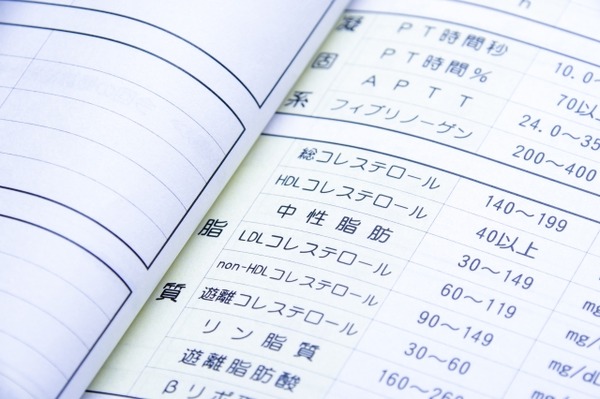 凝固系
PT時間秒 10.0～
PT時間% 70以上
APTT 24.0～35
フィブリノーゲン 200～400
脂質
総コレステロール 140～199
HDLコレステロール 40以上
中性脂肪 30～149 mg
LDLコレステロール 60～119 mg/
non-HDLコレステロール 90～149 mg/d
遊離コレステロール 30～60 mg/dL
リン脂質 160～260
遊離脂肪酸
βリポ